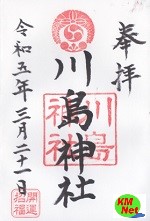 奉拝
川島神社
川島
神社
令和五年三月二十一日
開運
招福
KM
Net